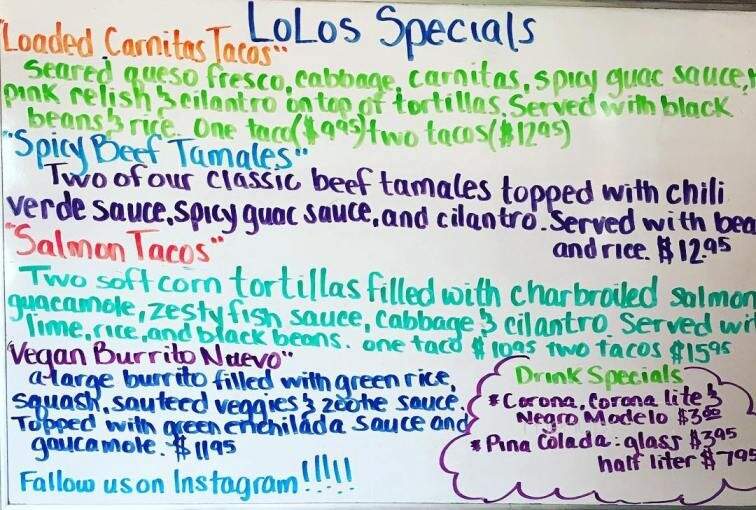 LoLos Specials
"Loaded Carnitas Tacos"
Seared queso fresco, cabbage, carnitas, spicy guac sauce,
pink relish & cilantro on top of tortillas. Served with black
beans & rice. One taco ($9.95) two tacos ($12.95)
"Spicy Beef Tamales"
Two of our classic beef tamales topped with chili
verde sauce, spicy guac sauce, and cilantro. Served with bea
and rice. $12.95
"Salmon Tacos"
Two soft corn tortillas filled with charbroiled salmon
guacamole, zesty fish sauce, cabbage & cilantro. Served wit
lime, rice, and black beans. one taco $10.95 two tacos $15.95
"Vegan Burrito Nuevo"
a large burrito filled with green rice,
squash, sauteed veggies & zoohe sauce.
Topped with green enchilada sauce and
goucamole. $11.95
Fallow us on Instagram!!!!!
Drink Specials
*Corona, Corona lite &
Negro Modelo $3.00
*Pina Colada: glass $3.95
half liter $7.95